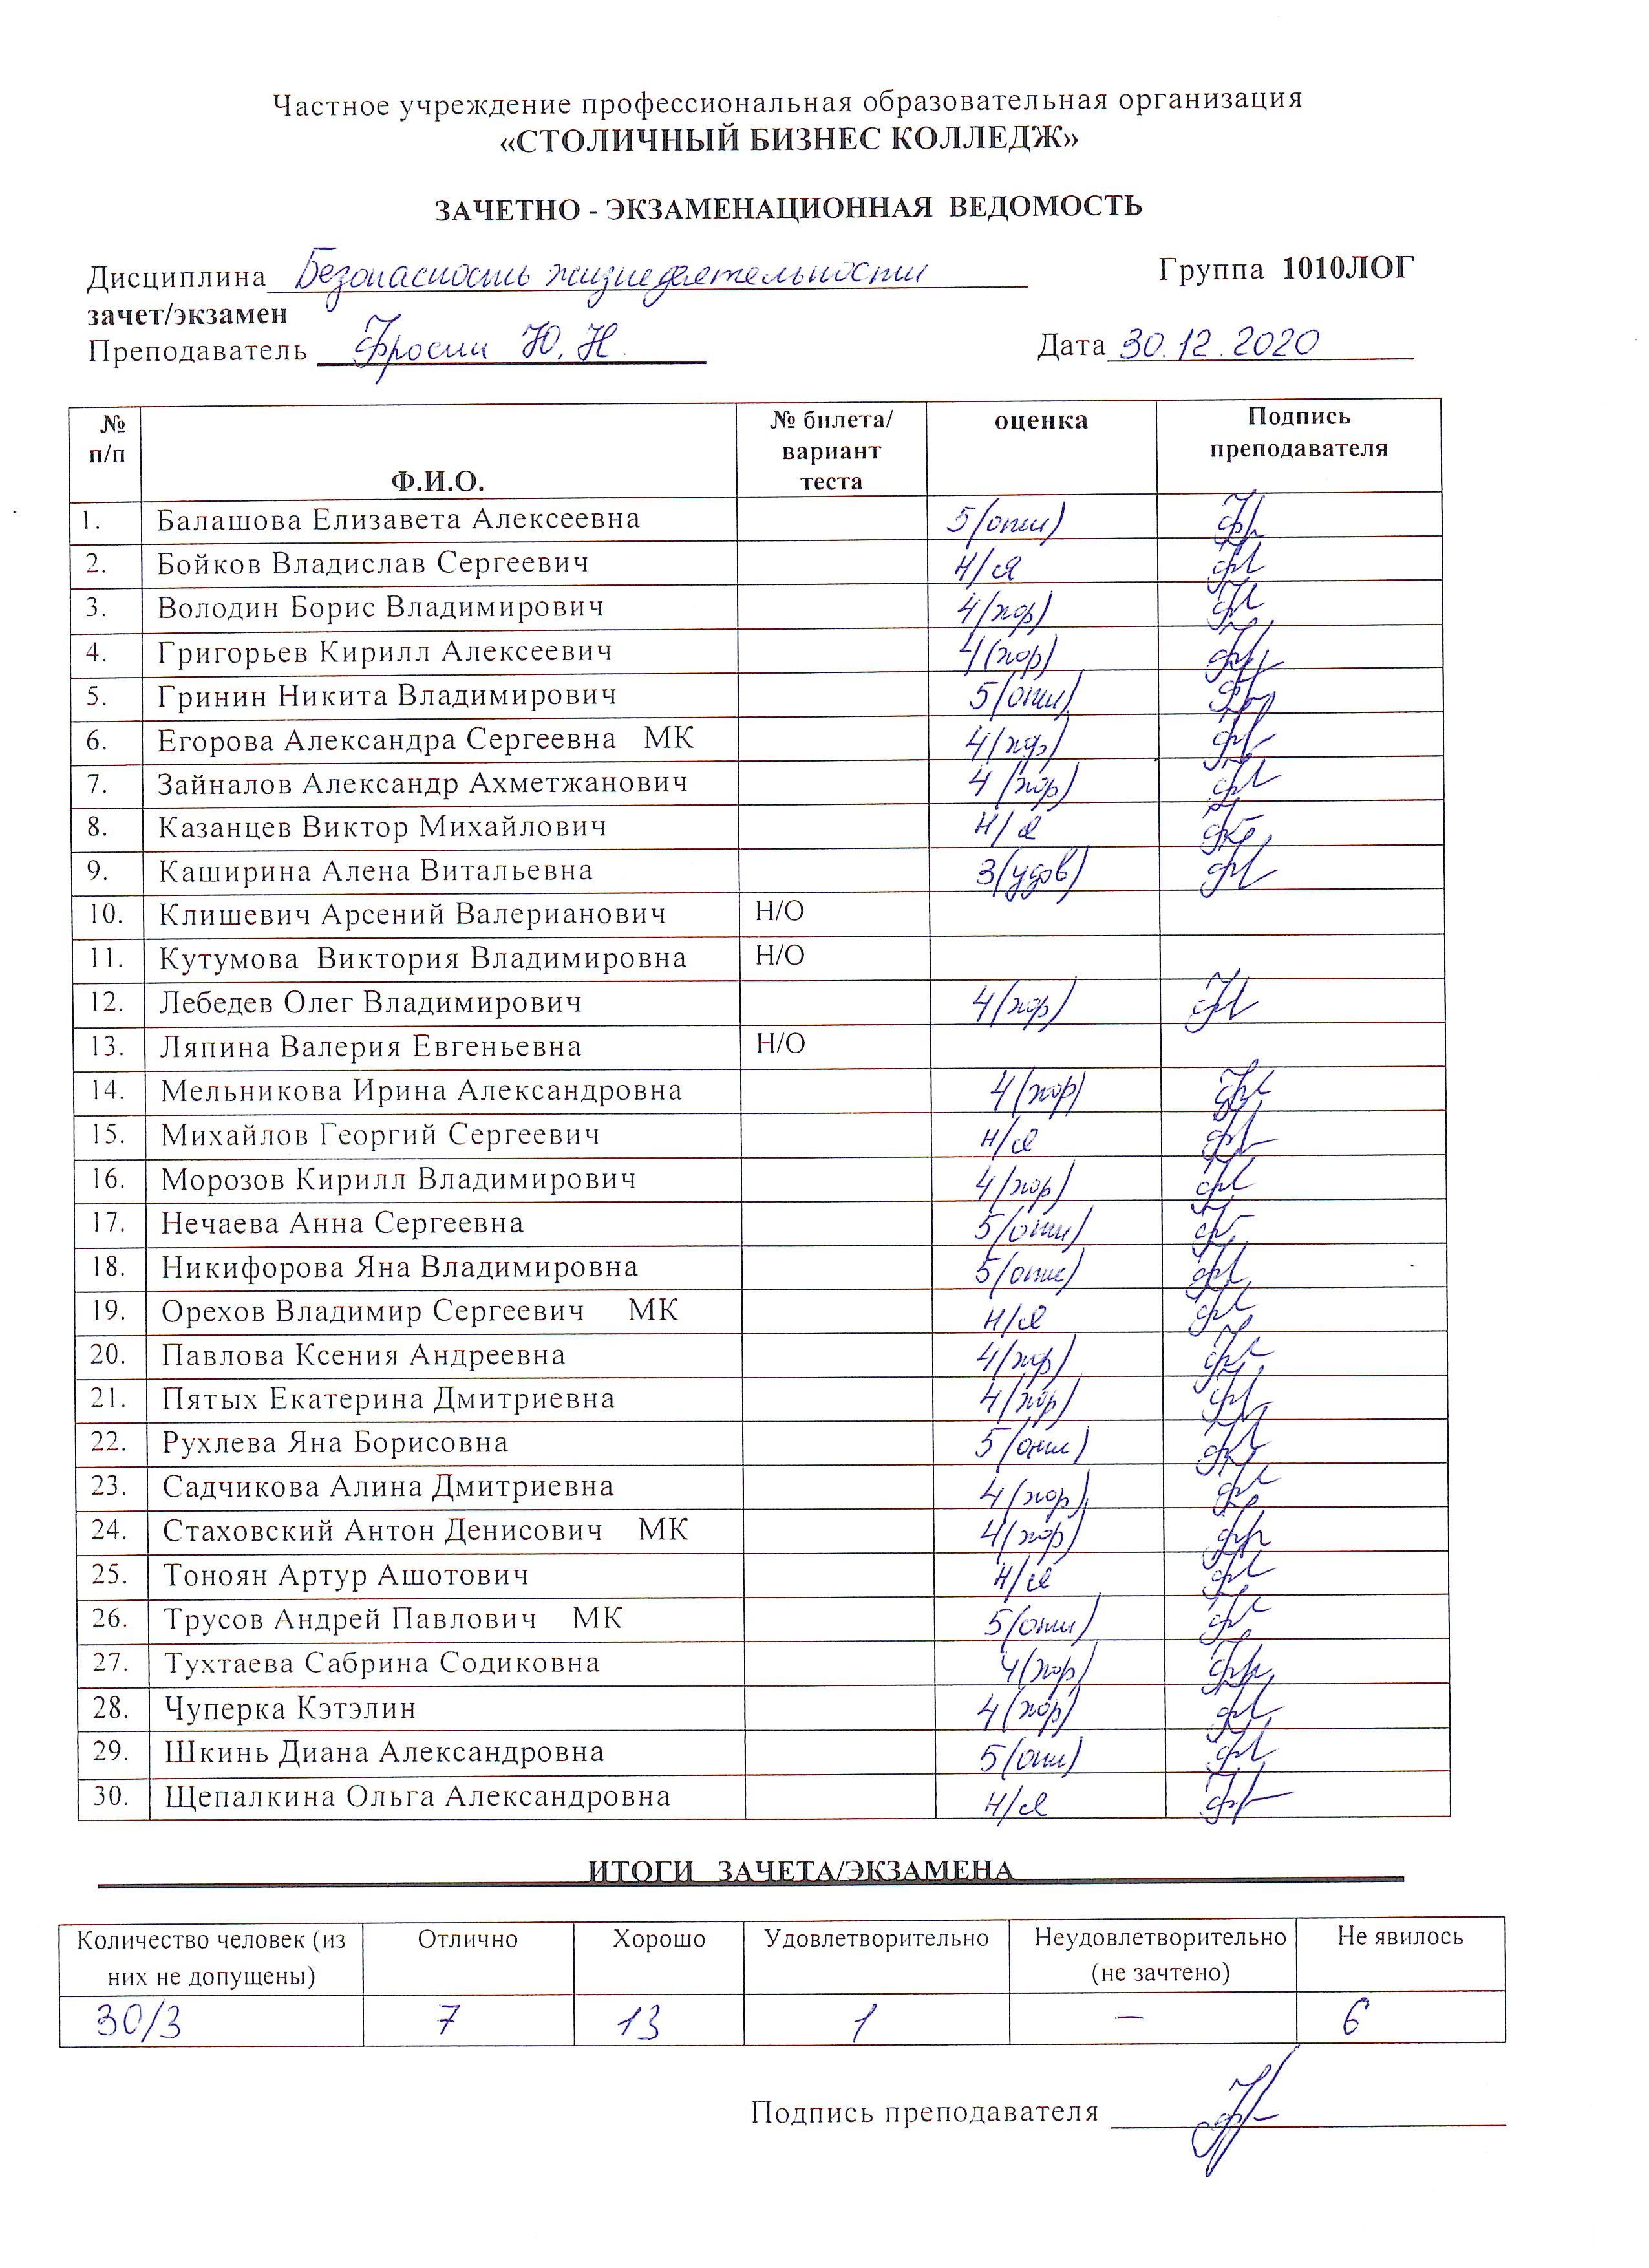 Частное учреждение профессиональная образовательная организация
«СТОЛИЧНЫЙ БИЗНЕС КОЛЛЕДЖ»
ЗАЧЕТНО - ЭКЗАМЕНАЦИОННАЯ ВЕДОМОСТЬ
Дисциплина Безопасность жизнедеятельности Группа 1010ЛОГ
зачет/экзамен
Преподаватель Фросин Ю. Н. Дата 30.12.2020
№ п/п Ф.И.О. № билета/ вариант теста оценка Подпись преподавателя
1. Балашова Елизавета Алексеевна 5(отл)
2. Бойков Владислав Сергеевич н/я
3. Володин Борис Владимирович 4(хор)
4. Григорьев Кирилл Алексеевич 4(хор)
5. Гринин Никита Владимирович 5(отл)
6. Егорова Александра Сергеевна МК 4(хор)
7. Зайналов Александр Ахметжанович 4(хор)
8. Казанцев Виктор Михайлович н/я
9. Каширина Алена Витальевна 3(удов)
10. Клишевич Арсений Валерианович Н/О
11. Кутумова Виктория Владимировна Н/О
12. Лебедев Олег Владимирович 4(хор)
13. Ляпина Валерия Евгеньевна Н/О
14. Мельникова Ирина Александровна 4(хор)
15. Михайлов Георгий Сергеевич н/я
16. Морозов Кирилл Владимирович 4(хор)
17. Нечаева Анна Сергеевна 5(отл)
18. Никифорова Яна Владимировна 5(отл)
19. Орехов Владимир Сергеевич МК н/я
20. Павлова Ксения Андреевна 4(хор)
21. Пятых Екатерина Дмитриевна 4(хор)
22. Рухлева Яна Борисовна 5(отл)
23. Садчикова Алина Дмитриевна 4(хор)
24. Стаховский Антон Денисович МК 4(хор)
25. Тоноян Артур Ашотович н/я
26. Трусов Андрей Павлович МК 5(отл)
27. Тухтаева Сабрина Содиковна 4(хор)
28. Чуперка Кэтэлин 4(хор)
29. Шкинь Диана Александровна 5(отл)
30. Щепалкина Ольга Александровна н/я
ИТОГИ ЗАЧЕТА/ЭКЗАМЕНА
Количество человек (из них не допущены) Отлично Хорошо Удовлетворительно Неудовлетворительно (не зачтено) Не явилось
30/3 7 13 1 — 6
Подпись преподавателя